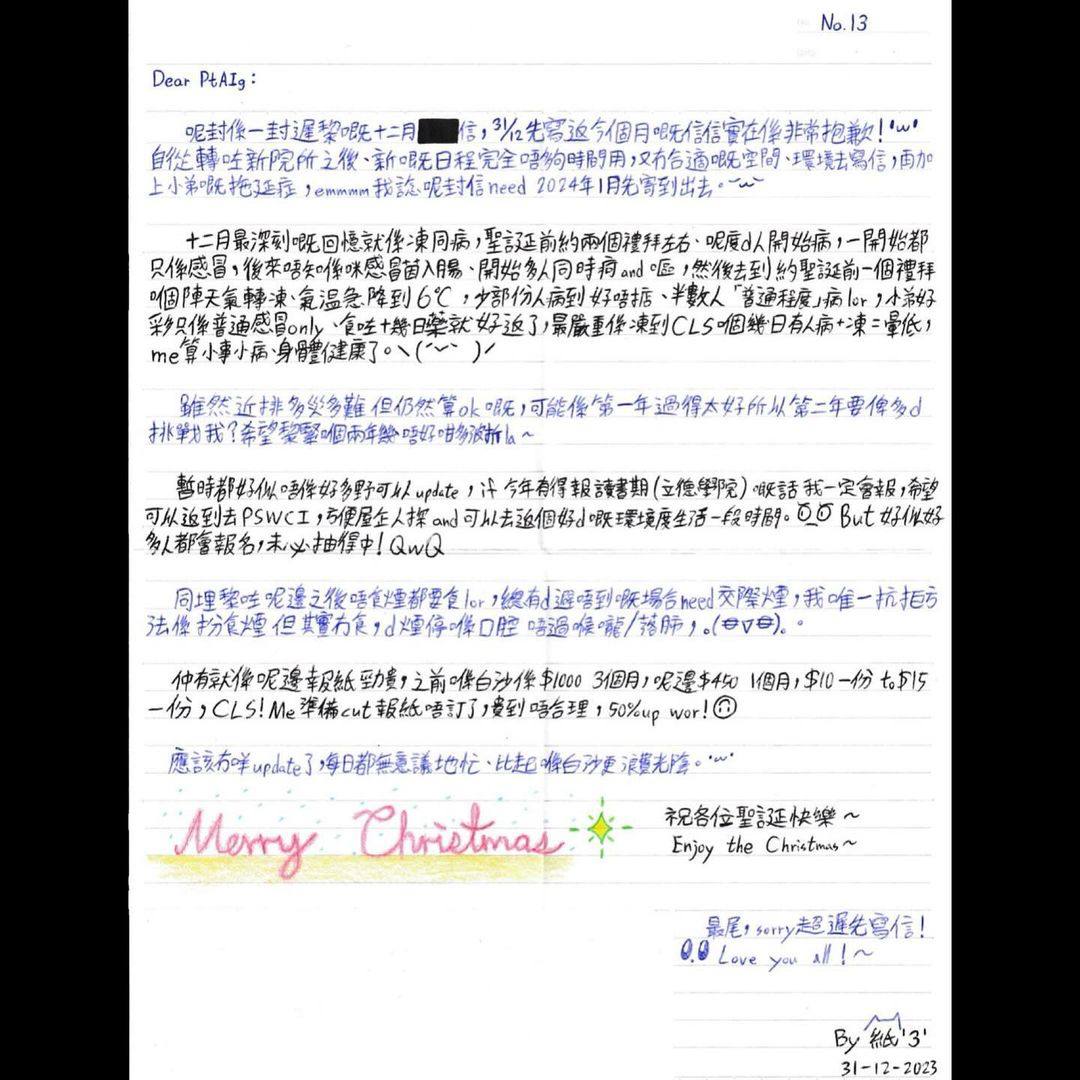 No.13
Dear PtAIg:
呢封係一封遲黎嘅十二月信,31/12先寫返今個月嘅信信實在係非常抱歉!'w'
自從轉咗新院所之後、新嘅日程完全唔夠時間用,又冇合適嘅空間、環境去寫信,再加
上小弟嘅拖延症,emmmm我諗呢封信need 2024年1月先寄到出去。
十二月最深刻嘅回憶就係凍同病,聖誕前約兩個禮拜左右、呢度d人開始病,一開始都
只係感冒,後來唔知係咪感冒菌入腸、開始多人同時痾and嘔,然後去到約聖誕前一個禮拜
嗰陣天氣轉凍、氣溫急降到6℃,少部份人病到好唔掂、半數人「普通程度」病lor,小弟好
彩只係普通感冒only、食咗十幾日藥就好返了,最嚴重係凍到CLS嗰幾日有人病+凍=暈低,
me算小事小病、身體健康了。
雖然近排多災多難但仍然算ok嘅,可能係第一年過得太好所以第二年要俾多d
挑戰我?希望黎緊嗰兩年幾唔好咁多波折la~
暫時都好似唔係好多野可以update,汁今年有得報讀書期(立德學院)嘅話我一定會報,希望
可以返到去PSWCI,方便屋企人探and可以去返個好d嘅環境度生活一段時間。But好似好
多人都會報名,未必抽得中!QwQ
同埋黎咗呢邊之後唔食煙都要食lor,總有d避唔到嘅場合need交際煙,我唯一抗拒方
法係扮食煙但其實冇食,d煙停喺口腔唔過喉嚨/落肺,
仲有就係呢邊報紙勁貴,之前喺白沙係$1000 3個月,呢邊$450 1個月,$10一份to$15
一份,CLS!Me準備cut報紙唔訂了,貴到唔合理,50%up wor!
應該冇咩update了,每日都無意議地忙、比起喺白沙更浪費光陰。'w'
Merry Christmas
祝各位聖誕快樂~
Enjoy the Christmas~
最尾,sorry超遲先寫信!
Love you all!~
By 紙'3'
31-12-2023